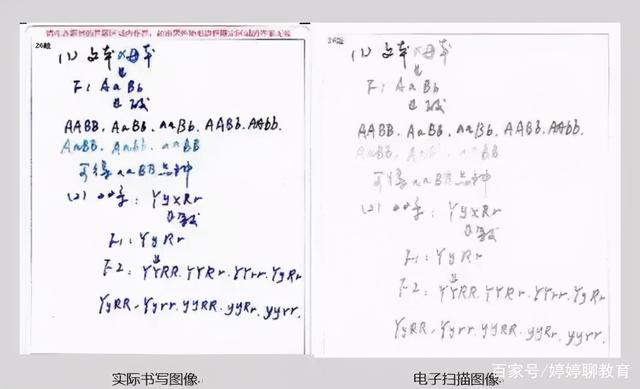 请在各题目的答题区域内作答，超出黑色矩形边框限定区域的答案无效
26题
(1) 父本 × 母本
F1 AaBb
AABB. AaBB. aaBb. AABb. AAbb.
AaBB. Aabb. aaBB
可得aaBB品种
(2) YyxRr
F1: YyRr
F2: YYRR. YYRr. YYrr. YyRr
YyRR. Yyrr. yyRR. yyRr. yyrr.
实际书写图像
26题
(1) 父本 × 母本
F1 AaBb
AABB. AaBB. aaBb. AABb. AAbb.
可得aaBB品种
(2) YyxRr
F1: YyRr
F2: YYRR. YYRr. YYrr. YyRr
YyRR. Yyrr. yyRR. yyRr. yyrr.
电子扫描图像
百家号/婷婷聊教育